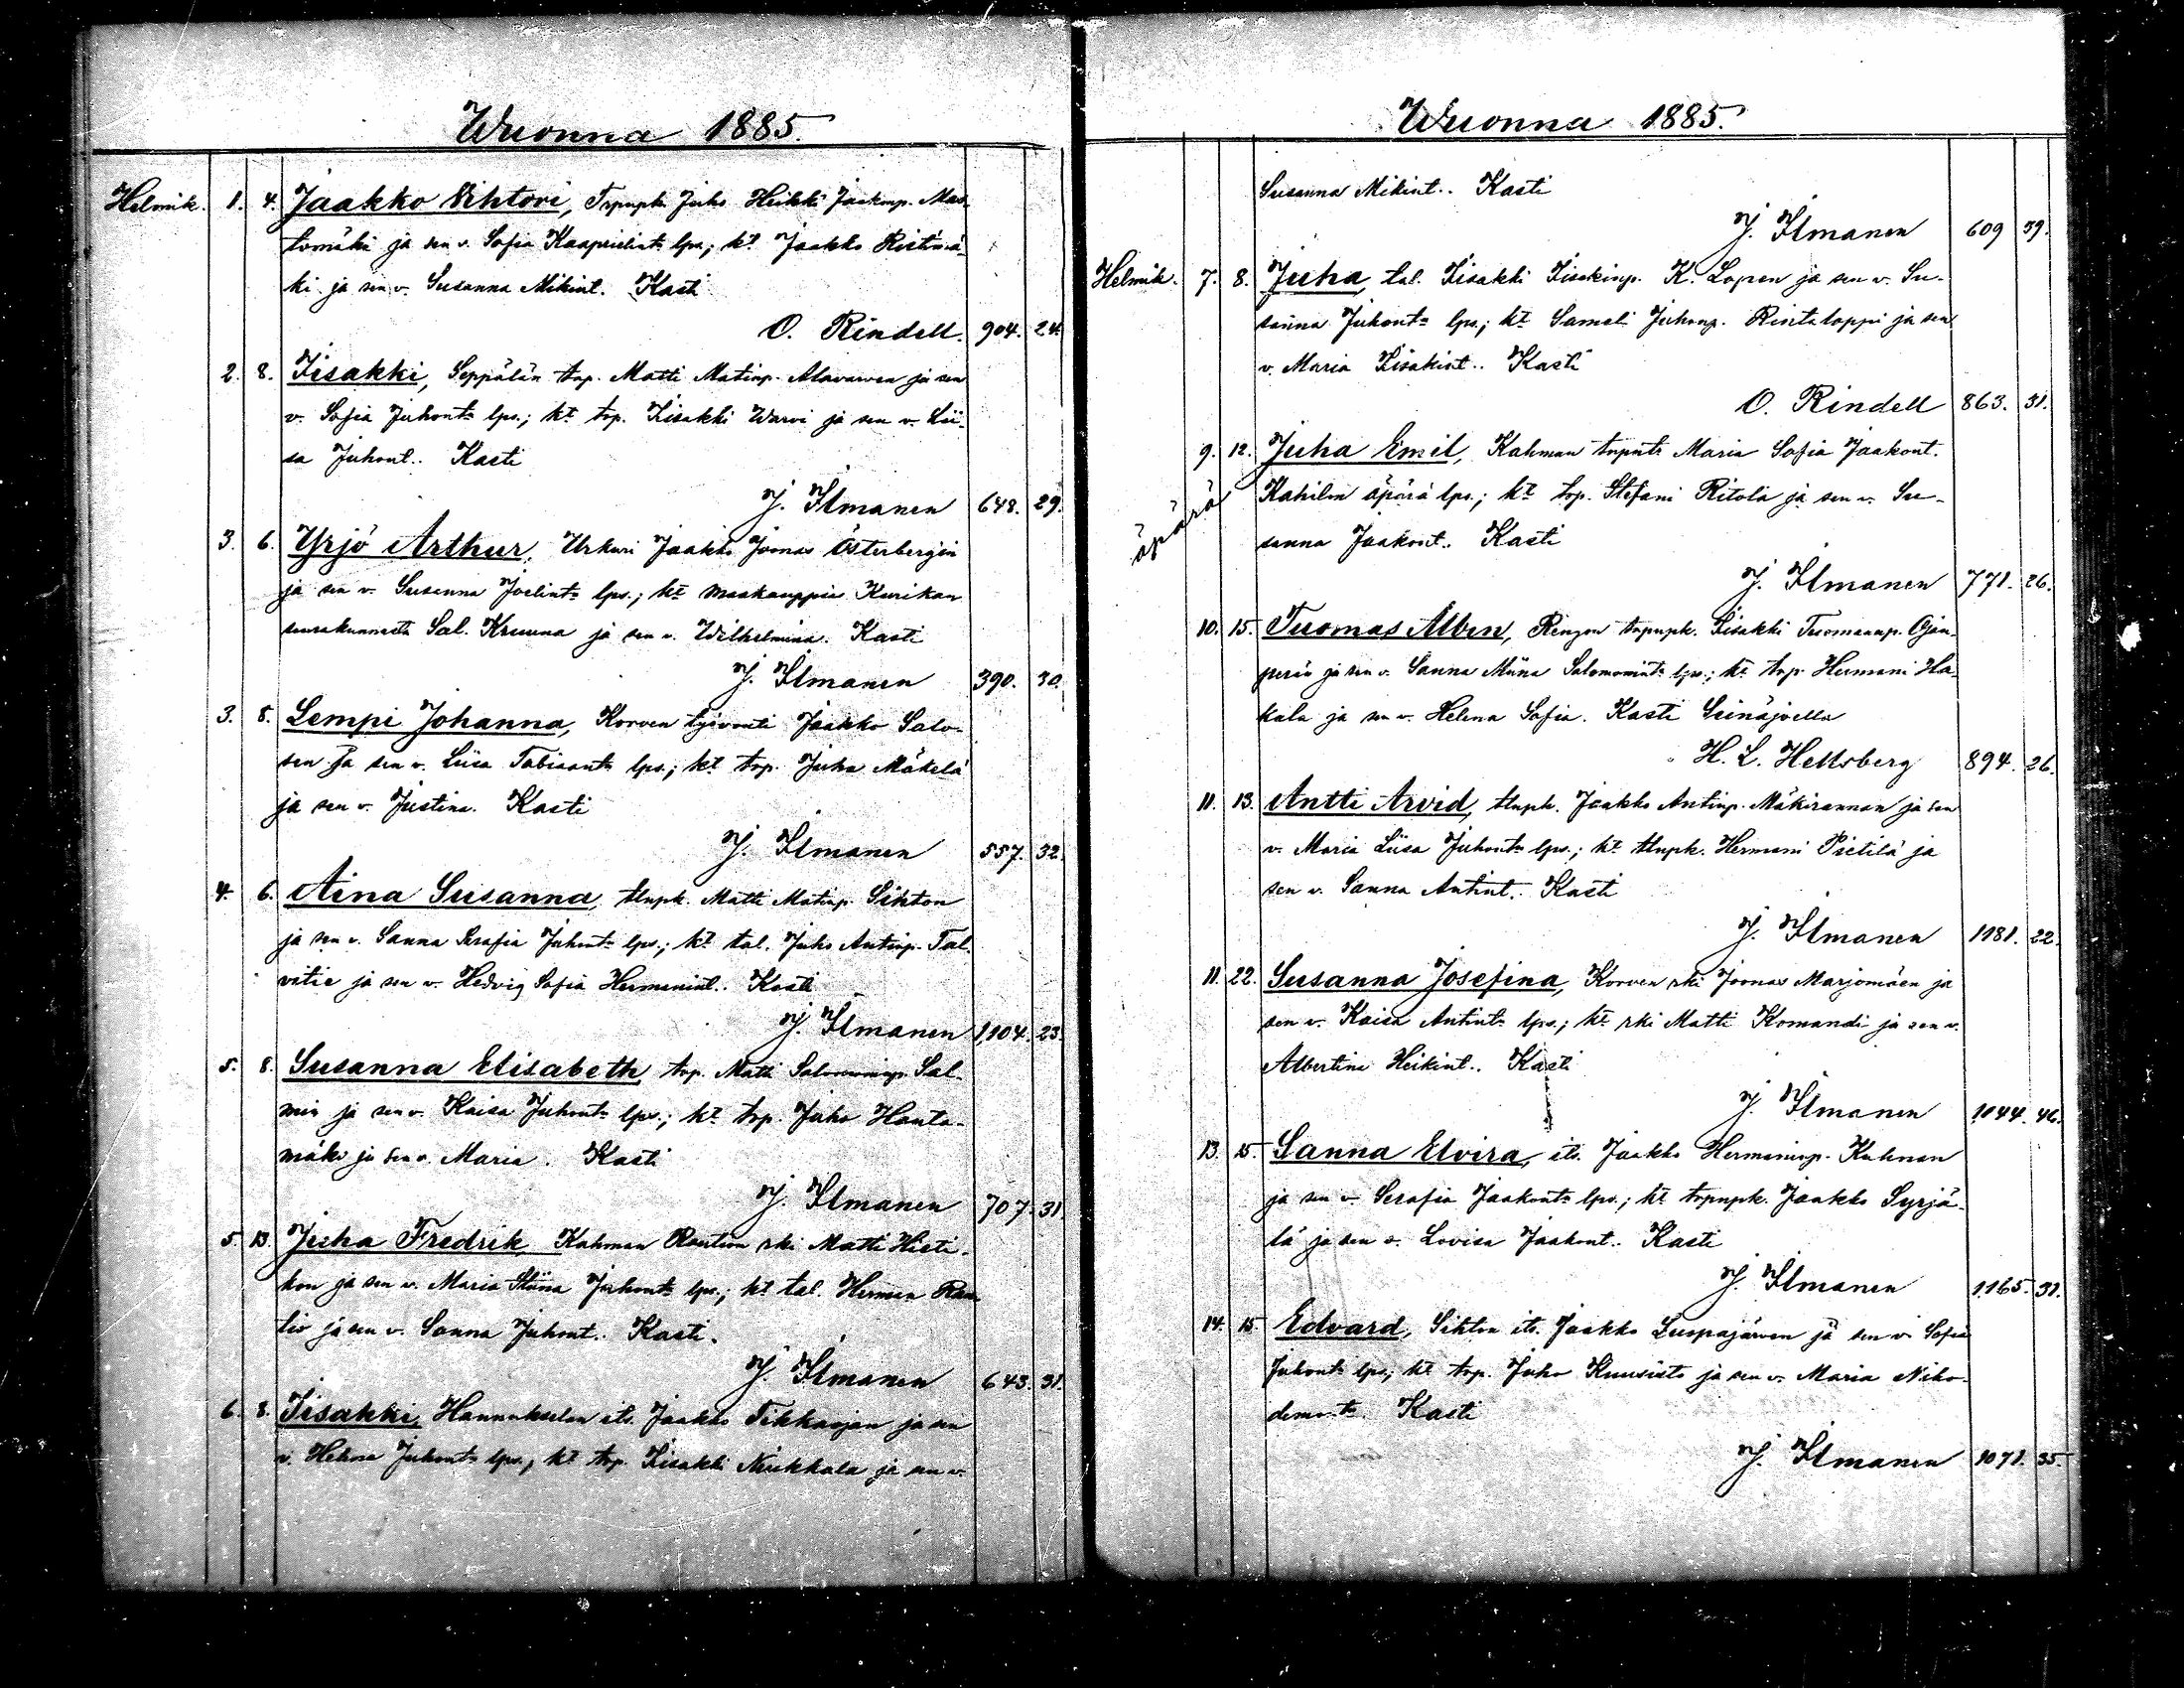 Wuonna 1885.
Helmik. 1. 4. Jaakko Vihtori, Trpnpk. Juho Heikki Jaakonp. Mas-
tomäki ja sen v. Sofia Kaaprielint. lps.; kt. Jaakko Ristimä-
ki ja sen v. Susanna Mikint. Kasti
O. Rindell. 904. 24.
2. 8. Iisakki, Seppälän trp. Matti Matinp. Alavarven ja sen
v. Sofia Juhont. lps.; kt. trp. Iisakki Warvi ja sen v. Lii-
sa Juhont. Kasti
J. Ilmanen 648. 29.
3. 6. Yrjö Arthur, Urkuri Jaakko Joonas Österbergin
ja sen v. Susanna Joelint. lps.; kt. maakauppias Kurikan
seurakunnasta Sal. Kruuna ja sen v. Wilhelmina. Kasti
J. Ilmanen 390. 30.
3. 8. Lempi Johanna, Korven työvouti Jaakko Salo-
sen ja sen v. Liisa Tobiaant. lps.; kt. trp. Juha Mäkelä
ja sen v. Justina. Kasti
J. Ilmanen 557. 32.
4. 6. Aina Susanna, tlnpk. Matti Matinp. Sihton
ja sen v. Sanna Serafia Juhont. lps.; kt. tal. Juho Antinp. Tal-
vitie ja sen v. Hedvig Sofia Hermanint. Kasti
J. Ilmanen 1,104. 23.
5. 8. Susanna Elisabeth, trp. Matti Salomoninp. Sal-
min ja sen v. Kaisa Juhont. lps.; kt. trp. Juho Hauta-
mäki ja sen v. Maria. Kasti
J. Ilmanen 707. 31.
5. 13. Juha Fredrik Kahman Rention rki Matti Histi-
kon ja sen v. Maria Stiina Juhont. lps.; kt. tal. Herman Ran
tio ja sen v. Sanna Juhont. Kasti.
J. Ilmanen 643. 31.
6. 8. Iisakki, Hannukselan its. Jaakko Tikkaojan ja sen
v. Helena Juhont. lps.; kt. trp. Iisakki Nirikkala ja sen v.
Wuonna 1885.
Susanna Mikint. Kasti
J. Ilmanen 609 39.
Helmik. 7. 8. Juha, tal. Iisakki Iisakinp. K. Lopen ja sen v. Su-
sanna Juhont. lps.; kt. Sameli Juhonp. Rintaloppi ja sen
v. Maria Iisakint. Kasti
O. Rindell 863. 31.
9. 12. Juha Emil, Kahman trpnt. Maria Sofia Jaakont.
äpärä Kahilan äpärä lps.; kt. trp. Stefani Ritola ja sen v. Su-
sanna Jaakont. Kasti
J. Ilmanen 771. 26.
10. 15. Tuomas Albin, Rengon trpnpk. Iisakki Tuomaanp. Ojan-
perän ja sen v. Sanna Miina Salomonint. lps.; kt. trp. Hermani Ha-
kala ja sen v. Helena Sofia. Kasti Seinäjoella
H. L. Hellsberg 894. 26.
11. 13. Antti Arvid, tlnpk. Jaakko Antinp. Mäkirannan ja sen
v. Maria Liisa Juhont. lps.; kt. tlnpk. Hermani Pietilä ja
sen v. Sanna Antint. Kasti
J. Ilmanen 1181. 22.
11. 22. Susanna Josefina, Korven rki Joonas Marjomäen ja
sen v. Kaisa Antint. lps.; kt. rki Matti Komandi ja sen v.
Albertina Heikint. Kasti
J. Ilmanen 1044. 46.
13. 15. Sanna Elvira, its. Jaakko Hermaninp. Kuhnan
ja sen v. Serafia Jaakont. lps.; kt. trpnpk. Jaakko Syrjä-
lä ja sen v. Lovisa Jaakont. Kasti
J. Ilmanen 1165. 31.
14. 15. Edvard, Sihton its. Jaakko Luopajärven ja sen v. Sofia
Juhont. lps.; kt. trp. Juho Kuusisto ja sen v. Maria Niko-
demont. Kasti
J. Ilmanen 1071. 35.